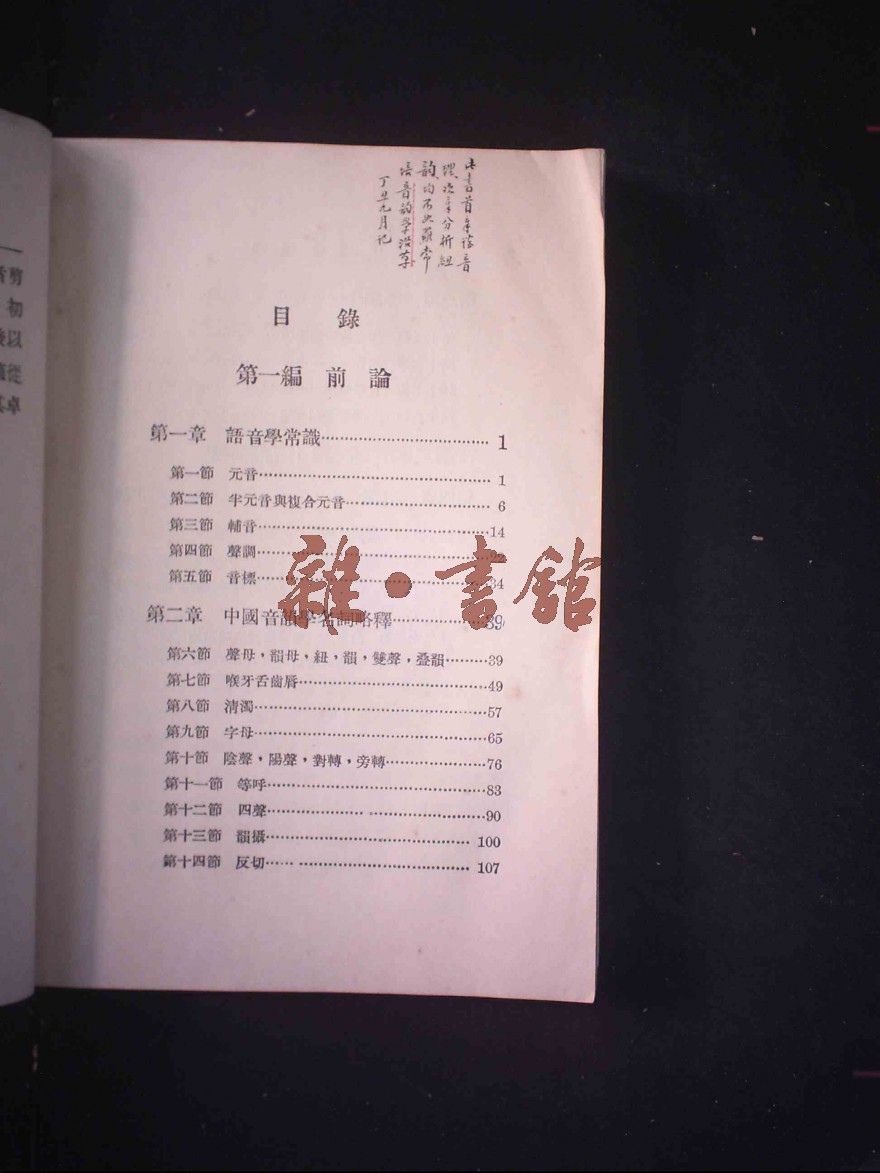 此書首章語音
璞次章分析紐
韻均不如羅常
培音韵學沿革
丁丑九月记
目錄
第一編 前論
第一章 語音學常識……………………………1
第一節 元音……………………………………1
第二節 半元音與複合元音……………………6
第三節 輔音……………………………………14
第四節 聲調……………………………………
第五節 音標……………………………………34
第二章 中國音韻學名詞略釋…………………39
第六節 聲母，韻母，紐，韻，雙聲，疊韻………39
第七節 喉牙舌齒唇……………………………49
第八節 清濁……………………………………57
第九節 字母……………………………………65
第十節 陰聲，陽聲，對轉，旁轉………………76
第十一節 等呼…………………………………83
第十二節 四聲…………………………………90
第十三節 韻攝…………………………………100
第十四節 反切…………………………………107
剪
初
以
從
卓
雜·書館